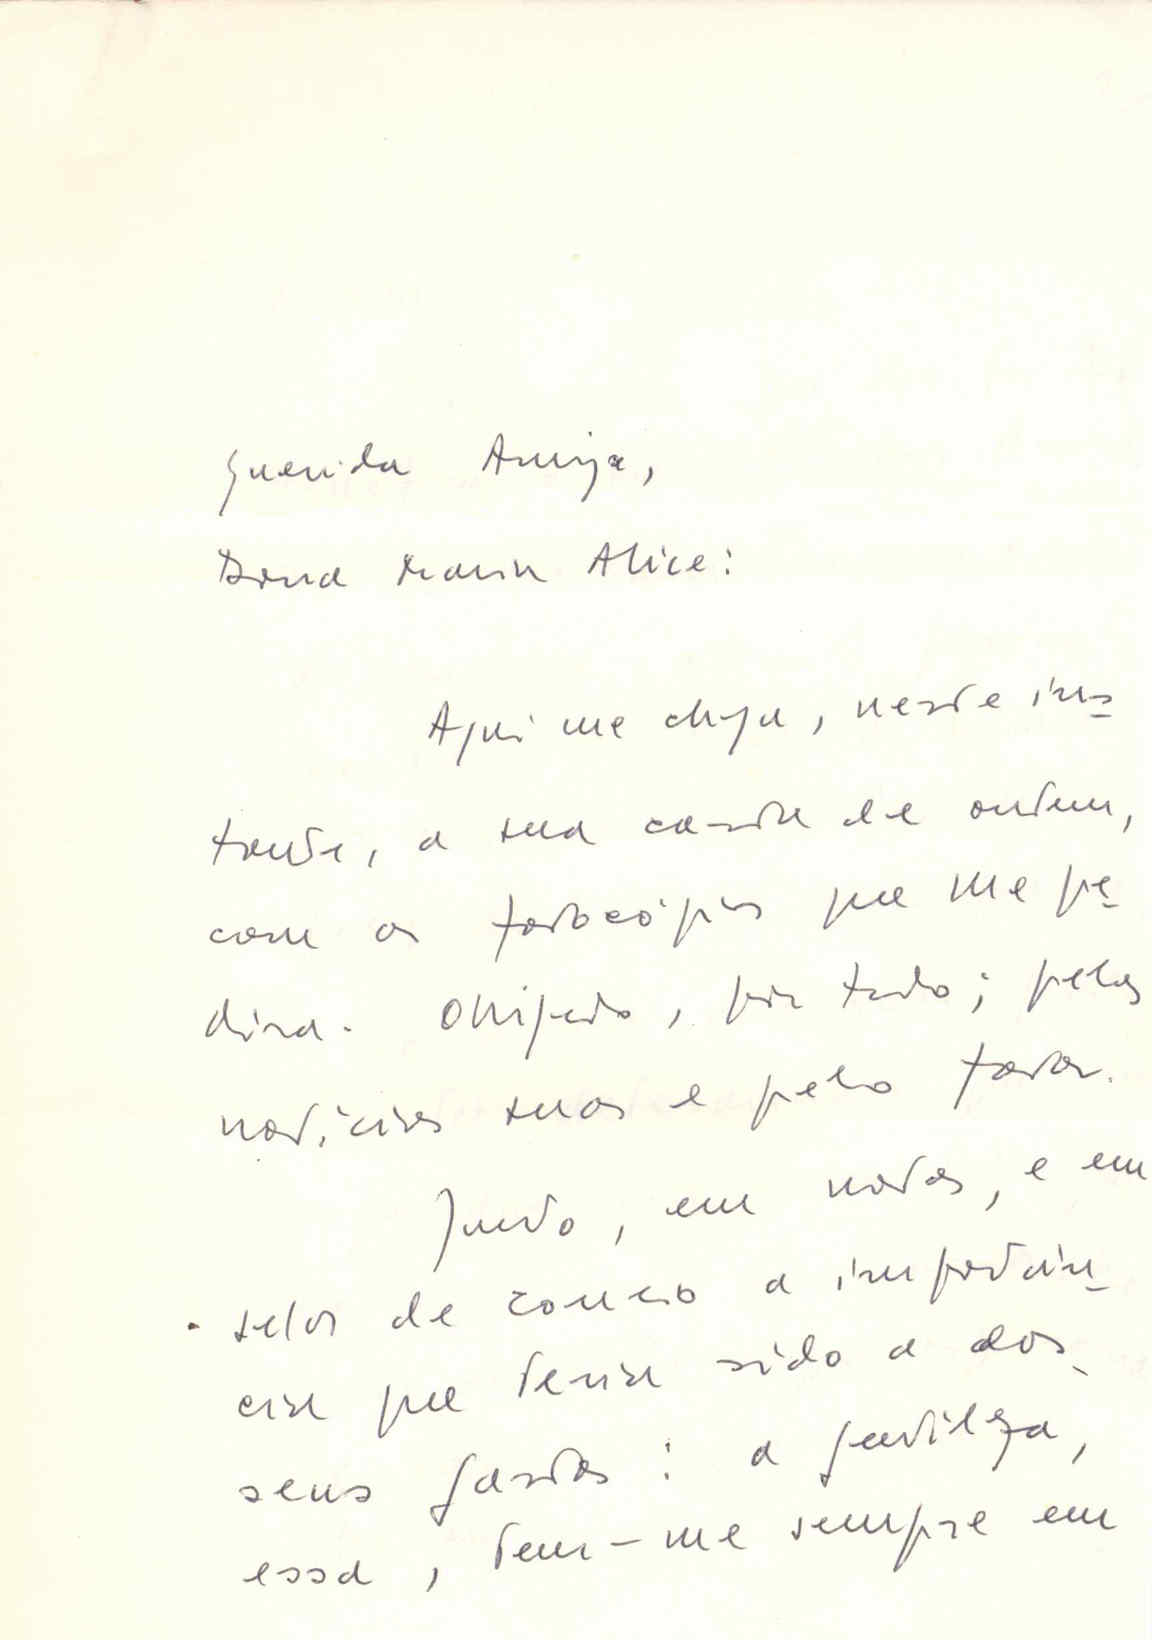 Querida Amiga,
Dona Maria Alice:
Aqui me chega, neste ins-
tante, a sua carta de ontem,
com as fotocópias que me pe-
dira. Obrigado, por tudo; pelas
notícias suas e pelo favor.
Junto, em notas, e em
selos de correio a importân-
cia que teria sido a dos
seus gastos: a gentileza,
essa, tem-me sempre em